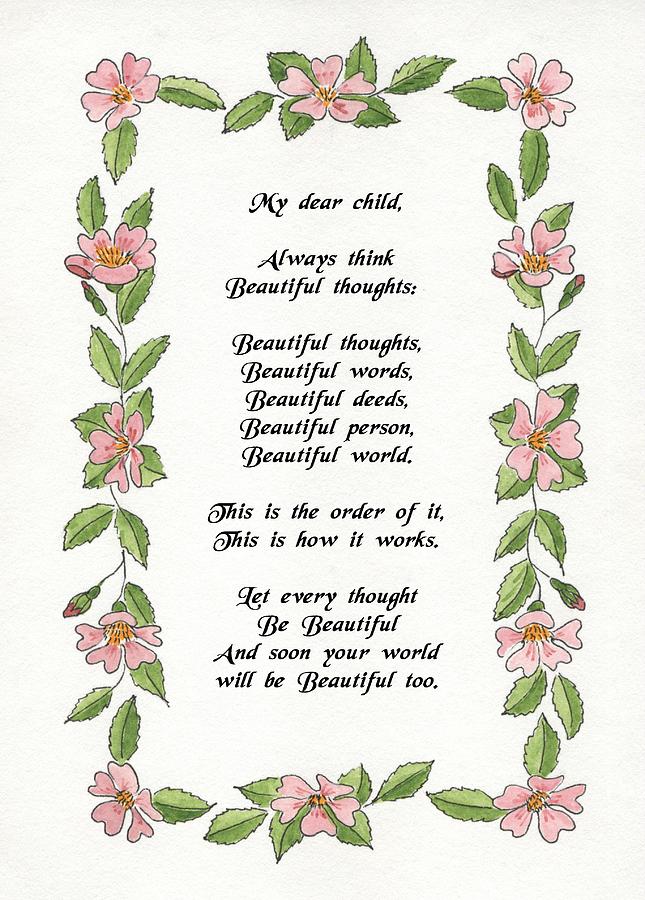 My dear child,
Always think
Beautiful thoughts:
Beautiful thoughts,
Beautiful words,
Beautiful deeds,
Beautiful person,
Beautiful world.
This is the order of it,
This is how it works.
Let every thought
Be Beautiful
And soon your world
will be Beautiful too.